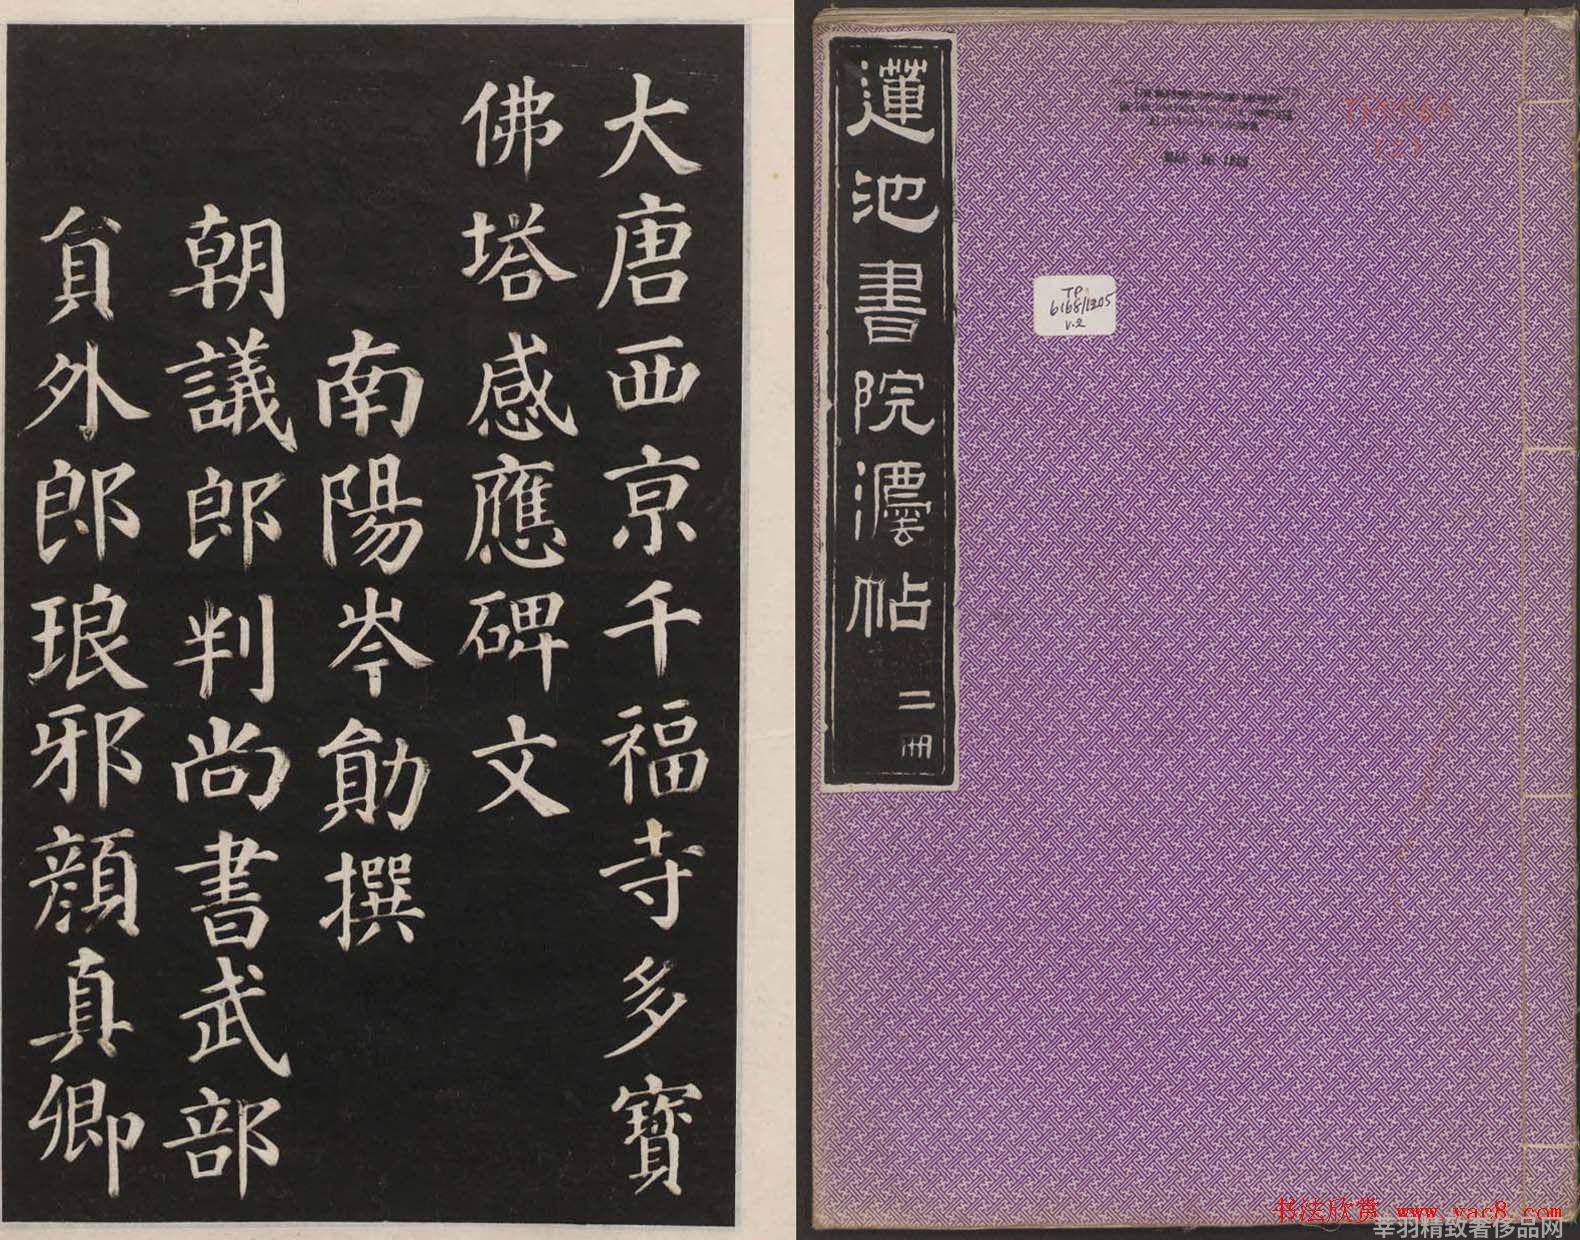 大唐西京千福寺多寶
佛塔感應碑文
南陽岑勛撰
朝議郎判尚書武部
貟外郎琅邪顔真卿
蓮池書院灋帖
二冊
TP
6168/1205
v.2
书法欣赏 www.yac8.com
莘羽精致奢侈品网